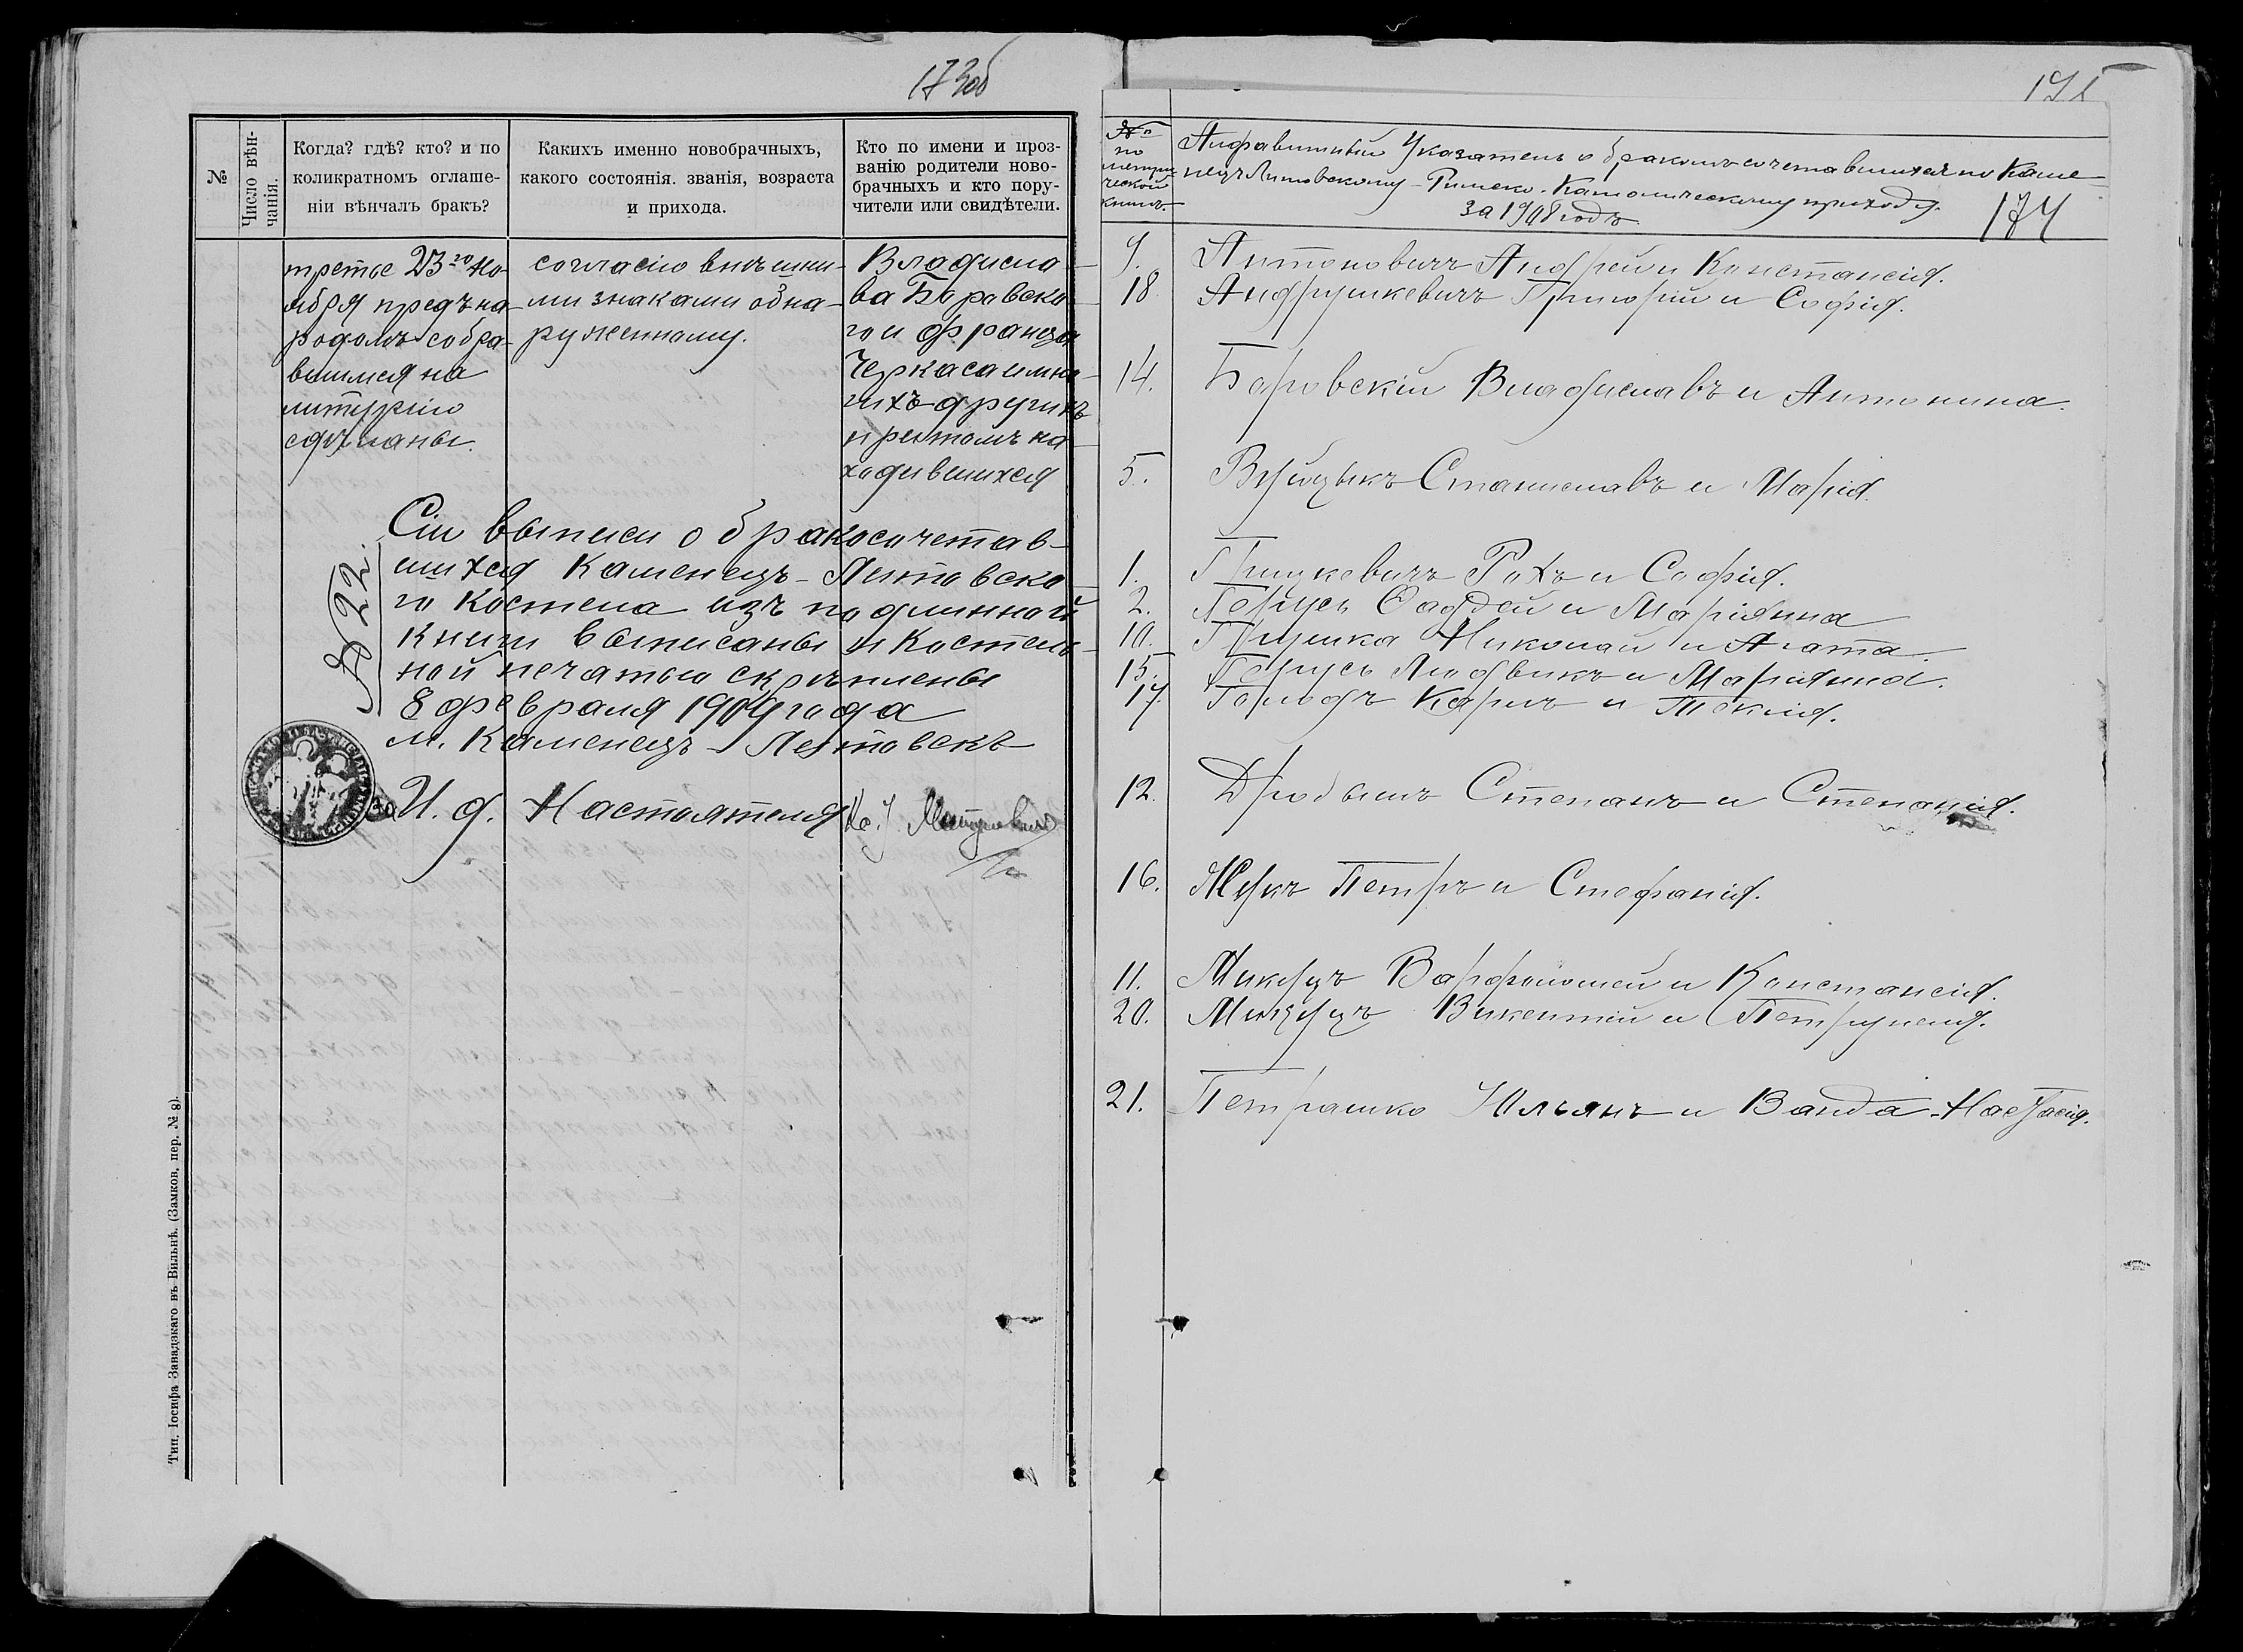 173об
№
Число вѣн-
чанія.
Когда? гдѣ? кто? и по
коликратномъ оглаше-
ніи вѣнчалъ бракъ?
Какихъ именно новобрачныхъ,
какого состоянія. званія, возраста
и прихода.
Кто по имени и проз-
ванію родители ново-
брачныхъ и кто пору-
чители или свидѣтели.
третье 23го но-
ября предъ на-
родомъ собра-
вшимся на
литургію
сдѣланы.
согласію внѣшни-
ми знаками обна-
руженному.
Владисла-
ва Боровска-
го и Франца
Черкаса и мно-
гихъ другихъ
при томъ на-
ходившихся
№ 22.
Сіи выписи о бракосочетав-
шихся Каменецъ-Литовска-
го костела изъ подлинной
книги выписаны и костель-
ной печатью скрѣплены
8 февраля 1909 года
м. Каменецъ-Литовскъ
И. д. Настоятеля Кс.
Тип. Іосифа Завадзкаго въ Вильнѣ. (Замков. пер. № 8).
174
№
по
метри-
ческой
книгѣ.
Алфавитный Указатель о бракосочетавшихся по Каме-
нецъ Литовскому-Римско-Католическому приходу
за 1908 годъ
9. Антоновичъ Андрей и Констанція.
18. Андрушкевичъ Григорій и Софія.
14. Боровскій Владиславъ и Антонина.
5. Вуйцыкъ Станиславъ и Марія.
1. Грицкевичъ Рохъ и Софія.
2. Герусь Фаддей и Маріянна
10. Грушка Николай и Агата.
15. Герусь Людвикъ и Маріянна.
17. Карлъ и Текля.
12. Степанъ и
16. Жукъ Петръ и Стефанія.
11. Микуцъ Варфоломей и Констанція.
20. Микуцъ Викентій и Петрунеля.
21. Петрашко Юльянъ и Ванда-Настасія.